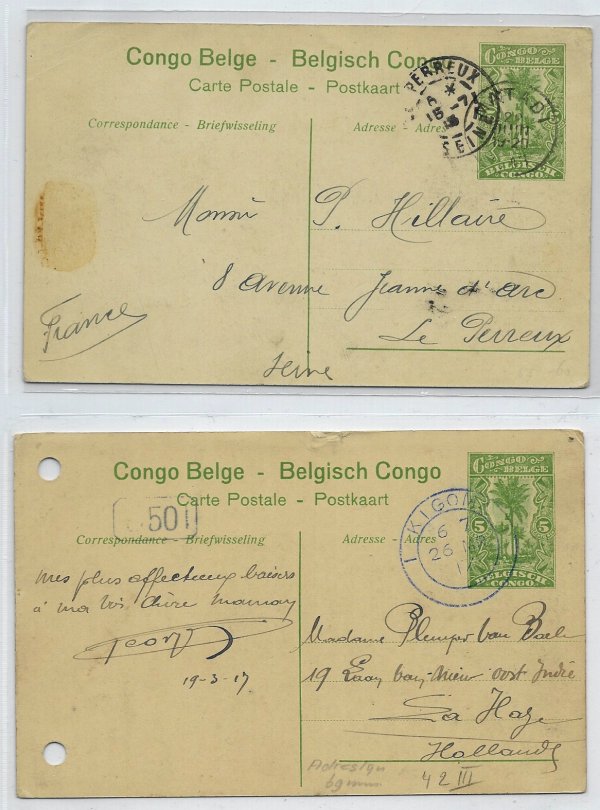 Congo Belge - Belgisch Congo
Carte Postale - Postkaart
Correspondance - Briefwisseling
Adresse - Adres
CONGO BELGE
BELGISCH CONGO
PERREUX
6 *
15 -7
SEINE
Monsr P. Hillaire
8 Avenue Jeanne d'Arc
Le Perreux
Seine
France
Congo Belge - Belgisch Congo
Carte Postale - Postkaart
Correspondance - Briefwisseling
Adresse -
501
CONGO BELGE
5 5
BELGISCH CONGO
KIGOMA
26
17
mes plus affectueux baisers
à ma très chère maman
19-3-17
Madame Plemper van
19 Laan van Niew Oost Indië
La Haye
Hollande
42 III